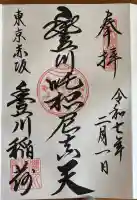 奉拝
令和七年二月一日
豊川吒枳尼真天
東京赤坂
豊川稲荷